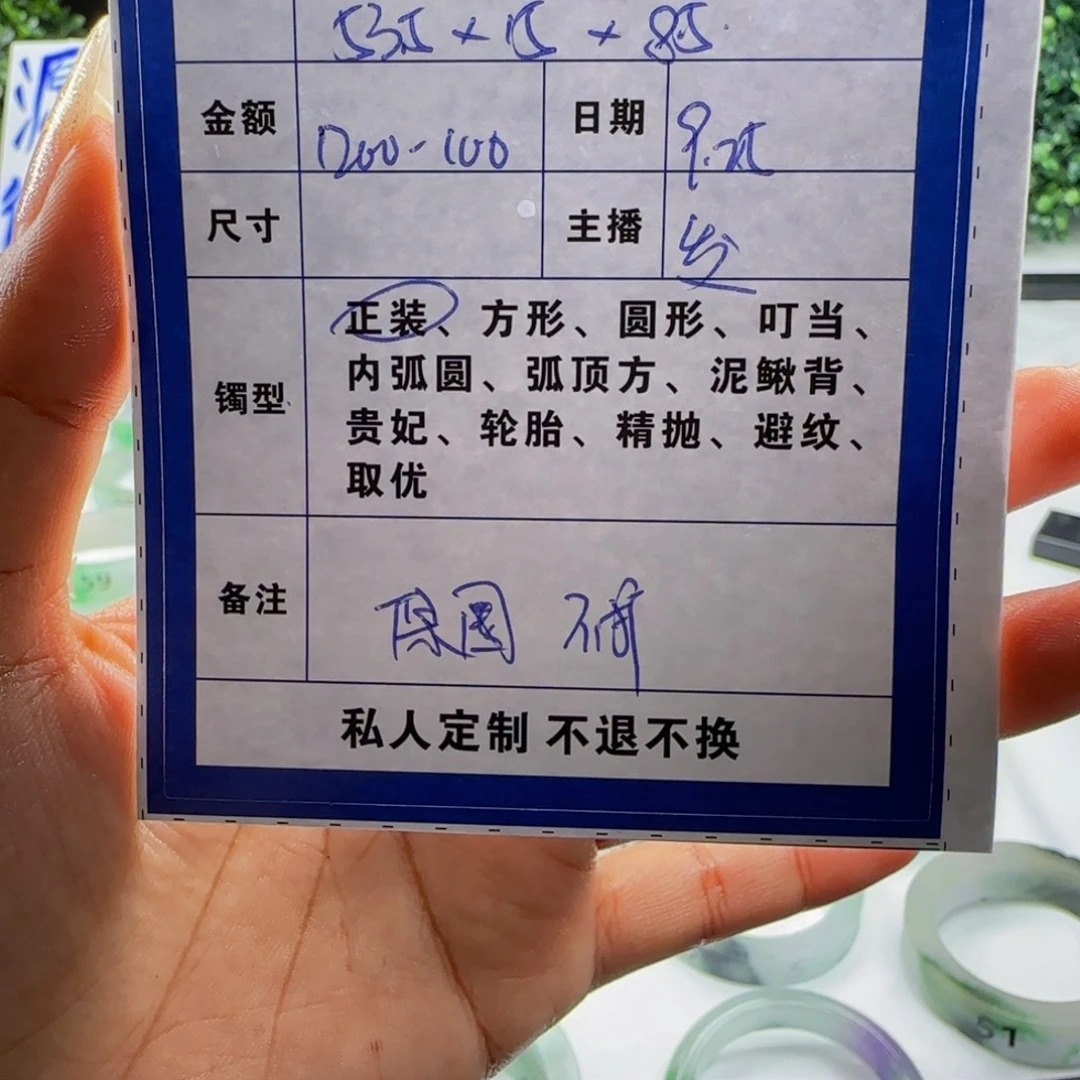 源
53.5 × 15 × 8.5
金额 1200-100 日期 9.25
尺寸 主播
镯型 正装、方形、圆形、叮当、
内弧圆、弧顶方、泥鳅背、
贵妃、轮胎、精抛、避纹、
取优
备注 保圆
私人定制 不退不换
59
57